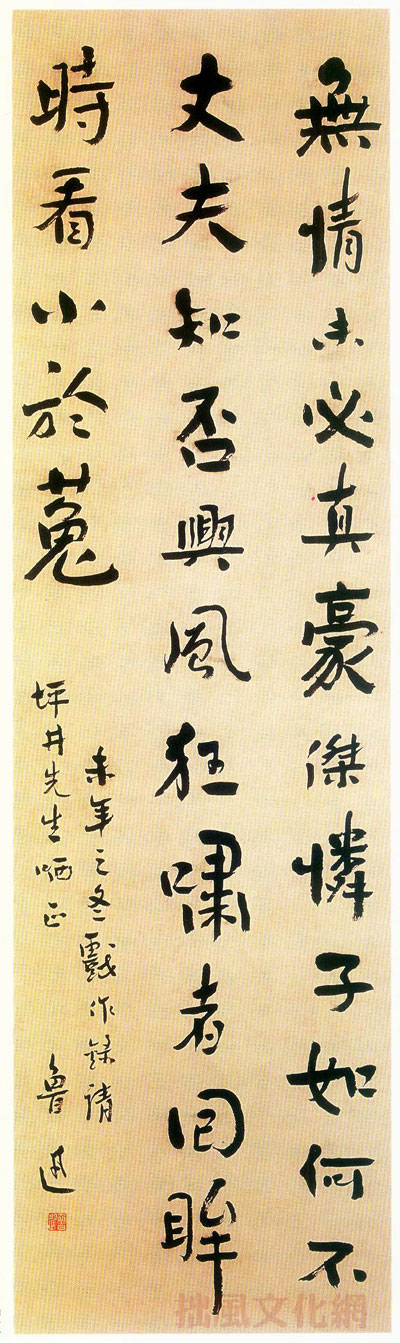 無情未必真豪傑憐子如何不
丈夫知否興風狂嘯者回眸
時看小於菟
未年之冬戲作錄請
坪井先生哂正
魯迅
拙風文化網